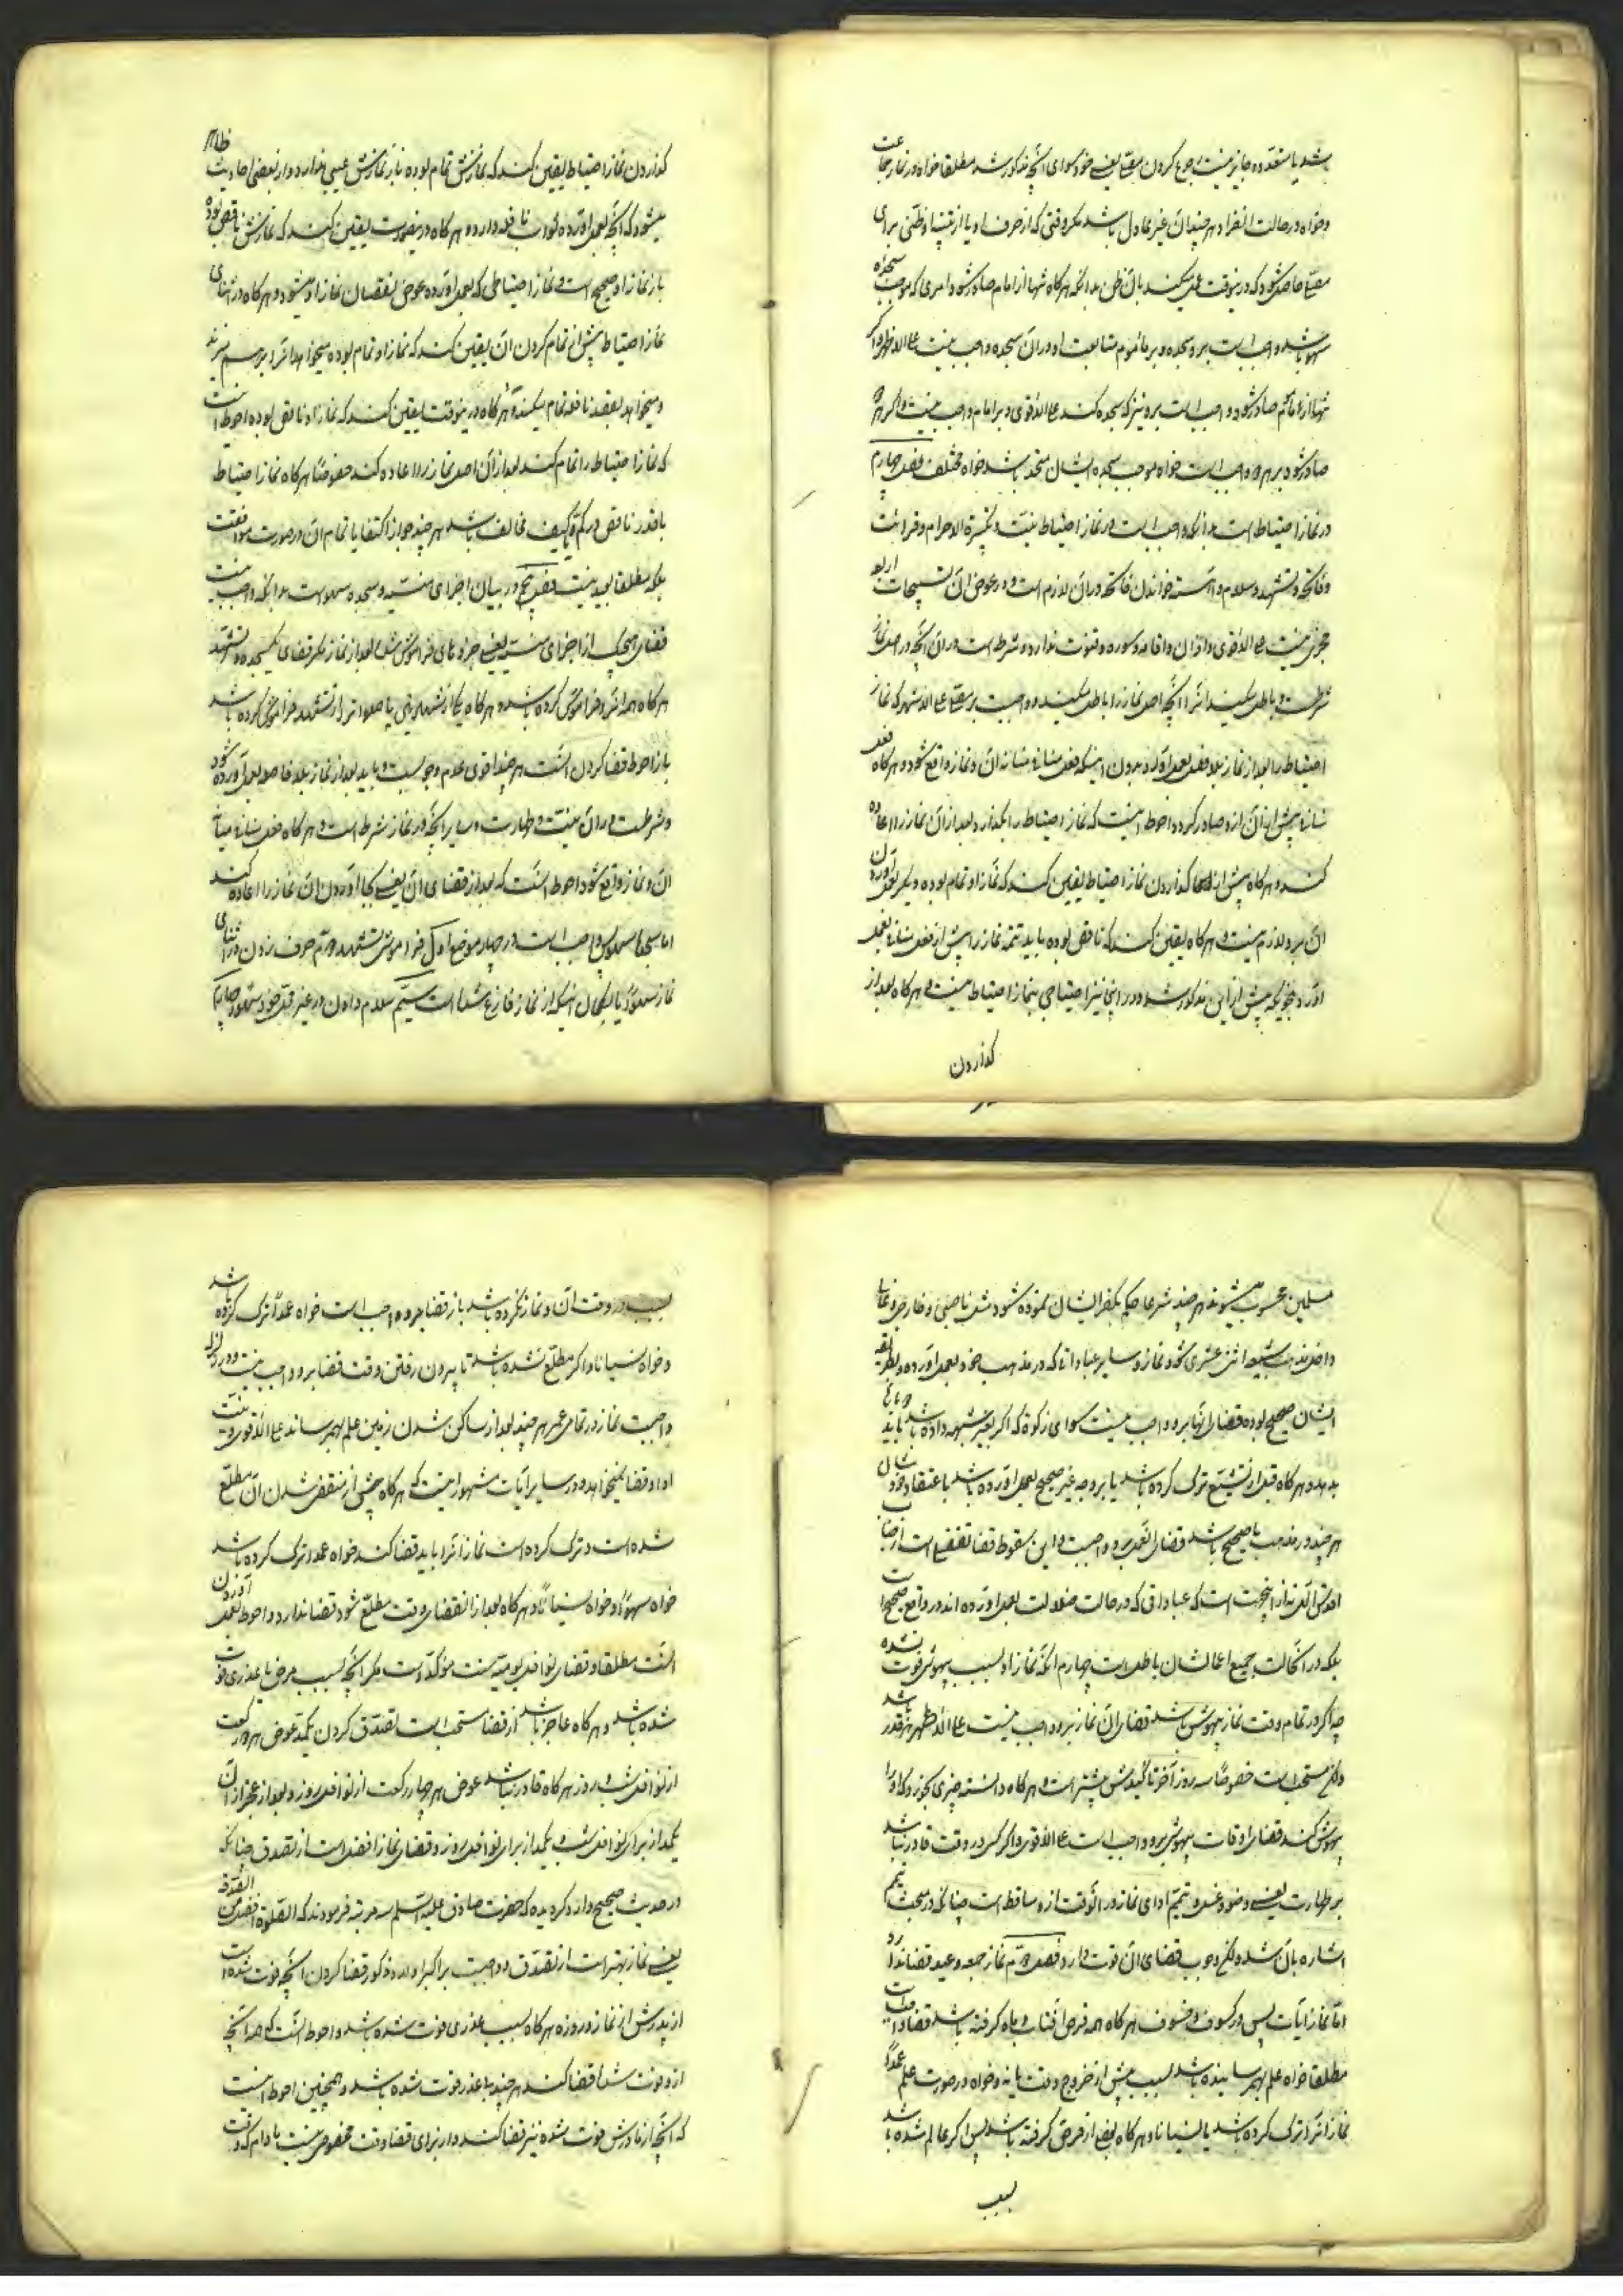 باشد یا متعدد جایز نیست رجوع کردن بمعنی خود سوای آنچه مذکور شد مطلقا خواه در نماز جماعت
و خواه در حالت انفراد هر چند آن غیر عادل باشد مگر وقتی که از حرف او یا از تنبیه او ظنی برای
حاصل شود که در اینوقت عمل میکند بآن ظن بدانکه هرگاه تنها از امام صادر شود امری که موجب سجده
سهو باشد واجب است بر او سجده و بر مأموم متابعت او در آن سجده واجب نیست علی الاظهر و اگر
تنها از مأموم صادر شود واجب است بر او نیز که سجده کند علی الاقوی و بر امام واجب نیست و اگر از هر دو
صادر شود بر هر دو واجب است خواه موجب سجده ایشان متحد باشد خواه مختلف فصل چهارم
در نماز احتیاط است بدانکه واجب است در نماز احتیاط نیت و تکبیرة الاحرام و قرائت
فاتحه و تشهد و سلام و آهسته خواندن فاتحه در آن لازم است و در عوض آن تسبیحات اربع
مجزی نیست علی الاقوی و اذان و اقامه و سوره و قنوت ندارد و شرط است در آن آنچه در اصل نماز
شرط است و باطل میکند آنرا آنچه اصل نماز را باطل میکند و واجبست بر مصلی علی الاشهر که نماز
احتیاط را بعد از نماز بلافصل بعمل آورد بدون اینکه فعل منافی میانه آن و نماز واقع شود و هرگاه فعل
منافی پیش از آن ازو صادر گردد احوط اینست که نماز احتیاط را بگذارد و بعد از آن نماز را اعاده
کند و هرگاه پیش از بجا گذاردن نماز احتیاط یقین کند که نماز او تمام بوده دیگر بعمل آوردن
آن بر او لازم نیست و هرگاه یقین کند که ناقص بوده باید تتمه نماز را پیش از فعل منافی بعمل
آورد بنحویکه پیش از این مذکور شد و در اینجا نیز احتیاجی بنماز احتیاط نیست و هرگاه بعد از
گذاردن
گذاردن نماز احتیاط یقین کند که نمازش تمام بوده باز نمازش عیبی ندارد و از بعضی احادیث ظاهر
میشود که آنچه بعمل آورده ثواب نافله دارد و هرگاه در اینصورت یقین کند که نمازش ناقص بوده
باز نماز او صحیح است و نماز احتیاطی که بعمل آورده عوض نقصان نماز او میشود و هرگاه در اثنای
نماز احتیاط پیش از تمام کردن آن یقین کند که نماز او تمام بوده میخواهد آنرا بر هم میزند
و میخواهد بقصد نافله تمام میکند و هرگاه در اینوقت یقین کند که نماز او ناقص بوده احوط آنست
که نماز احتیاط را تمام کند و بعد از آن اصل نماز را اعاده کند خصوصا هرگاه نماز احتیاط
با قدر ناقص در کم و کیف مخالف باشد هر چند جواز اکتفا باتمام آن در صورت موافقت
بلکه مطلقا بعید نیست فصل پنجم در بیان اجزای منسیه و سجده سهو است بدانکه واجب نیست
قضای هیچیک از اجزای منسیه یعنی جزوهای فراموش شده بعد از نماز مگر قضای یکسجده و تشهد
هرگاه همه آنرا فراموش کرده باشد و هرگاه یکی از شهادتین یا صلوات را از تشهد فراموش کرده باشد
باز احوط قضا کردن آنست هر چند اقوی عدم وجوبست و باید بعد از نماز بلافاصله بعمل آورده شود
و شرطست در آن نیت و طهارت و سایر آنچه در نماز شرط است و هرگاه فعل منافی میانه
آن و نماز واقع شود احوط آنست که بعد از قضای آن یعنی بجا آوردن آن نماز را اعاده کند
اما سجده سهو پس واجب است در چهار موضع اول فراموشی تشهد دوم حرف زدن در اثنای
نماز سهوا یا بگمان اینکه از نماز فارغ شده است سیم سلام دادن در غیر محل خود سهوا چهارم
مسلمین محسوب میشوند هر چند شرعا حکم بکفر ایشان نموده شود مثل ناصبی و خارجی و غلات
داخل مذهب شیعه اثنی عشری شود نماز و سایر عباداتی که در مذهب خود بعمل آورده و بطریقه
ایشان صحیح بوده قضای آنها بر او واجب نیست سوای زکوة که اگر بغیر شیعه داده باشد باید
بدهد و هرگاه قبل از تشیع ترک کرده باشد یا بر وجه غیر صحیح بعمل آورده باشد باعتقاد خودشان
هر چند در مذهب ما صحیح باشد قضای آن بر او واجبست و این سقوط قضا تفضلی است از جناب
اقدس الهی نه از اینجهت است که عباداتی که در حالت ضلالت بعمل آورده اند در واقع صحیح است
بلکه در آنحالت جمیع اعمالشان باطلست چهارم آنکه نماز او بسبب بیهوشی فوت نشده
چه اگر در تمام وقت نماز بیهوش باشد قضای آن نماز بر او واجب نیست علی الاظهر هر قدر باشد
ولی مستحب است خصوصا سه روز آخر تاکیدش بیشتر است و هرگاه دانسته چیزی بخورد که او را
بیهوش کند قضای اوقات بیهوشی بر او واجب است علی الاقوی و اگر کسی در وقت قادر نباشد
بر طهارت یعنی وضو و غسل و تیمم ادای نماز در آنوقت ازو ساقط است چنانکه در مبحث تیمم
اشاره بآن شد ولی وجوب قضای آن قوت دارد فصل دوم نماز جمعه و عید قضا ندارد
اما نماز آیات پس در کسوف و خسوف هرگاه همه قرص آفتاب و ماه گرفته باشد قضا واجبست
مطلقا خواه علم بهم رسانیده باشد بسبب پیش از خروج وقت یا نه و خواه در صورت علم عمدا
نماز آنرا ترک کرده باشد یا نسیانا و هرگاه بعضی از قرص گرفته باشد پس اگر عالم شده باشد
بسبب
بسبب در وقت آن و نماز نکرده باشد باز قضا بر او واجب است خواه عمدا ترک کرده باشد
و خواه نسیانا و اگر مطلع نشده باشد تا بیرون رفتن وقت قضا بر او واجب نیست و در زلزله
واجبست نماز در تمام عمر هر چند بعد از ساکن شدن زمین علم بهم رساند علی الاقوی و نیت
ادا و قضا نمیخواهد و در سایر آیات مشهور اینست که هرگاه پیش از منقضی شدن آن مطلع
شده است و ترک کرده است نماز آنرا باید قضا کند خواه عمدا ترک کرده باشد
خواه سهوا و خواه نسیانا و هرگاه بعد از انقضای وقت مطلع شود قضا ندارد و احوط بعمل آوردن
آنست مطلقا و قضای نوافل یومیه سنت مؤکد است مگر آنچه بسبب مرض یا عذری فوت
شده باشد و هرگاه عاجز باشد از قضا مستحب است تصدق کردن یکمد عوض هر دو رکعت
از نوافل شب و روز هرگاه قادر نباشد عوض هر چهار رکعت از نوافل روز و بعد از عجز از آن
یکمد از برای نوافل شب و یکمد از برای نوافل روز و قضای نماز افضل است از تصدق چنانکه
در حدیث صحیح وارد گردیده که حضرت صادق علیه السلام سه مرتبه فرمودند که الصلوة افضل من الصدقة
یعنی نماز بهتر است از تصدق و واجبست بر اکبر اولاد ذکور قضا کردن آنچه فوت شده است
از پدرش از نماز و روزه هرگاه بسبب عذری فوت شده باشد و احوط آنست که هر آنچه
ازو فوت شده قضا کند هر چند بلا عذر فوت شده باشد و همچنین احوط اینست
که آنچه از مادرش فوت شده نیز قضا کند و از برای قضا وقت مخصوصی نیست مادام که وقت